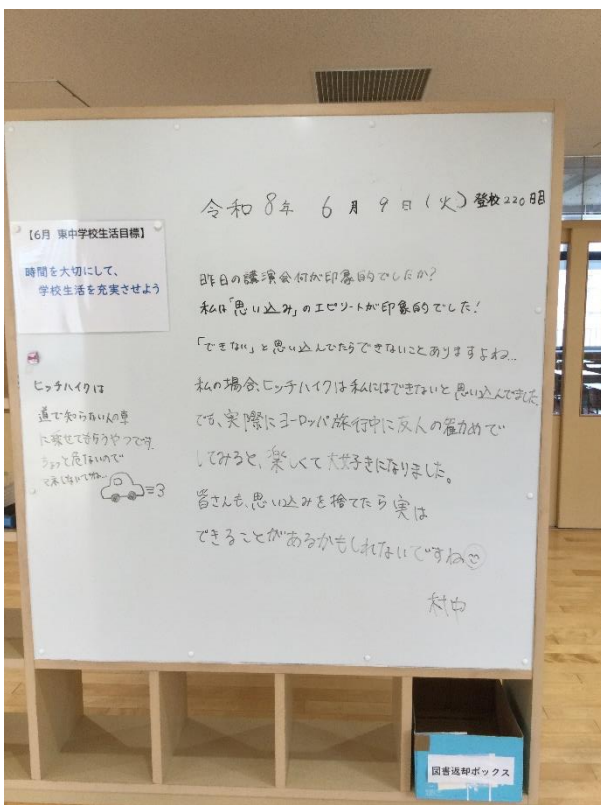 令和8年 6月9日(火)登校220日目
【6月 東中学校生活目標】
時間を大切にして、
学校生活を充実させよう
昨日の講演会何が印象的でしたか?
私は「思い込み」のエピソードが印象的でした!
「できない」と思い込んでたらできないことありますよね…
私の場合、ヒッチハイクは私にはできないと思い込んでました。
でも、実際にヨーロッパ旅行中に友人の勧めで
してみると、楽しくて大好きになりました。
皆さんも、思い込みを捨てたら実は
できることがあるかもしれないですね
村中
ヒッチハイクは
道で知らない人の車
に乗せてもらうやつです。
ちょっと危ないので
図書返却ボックス